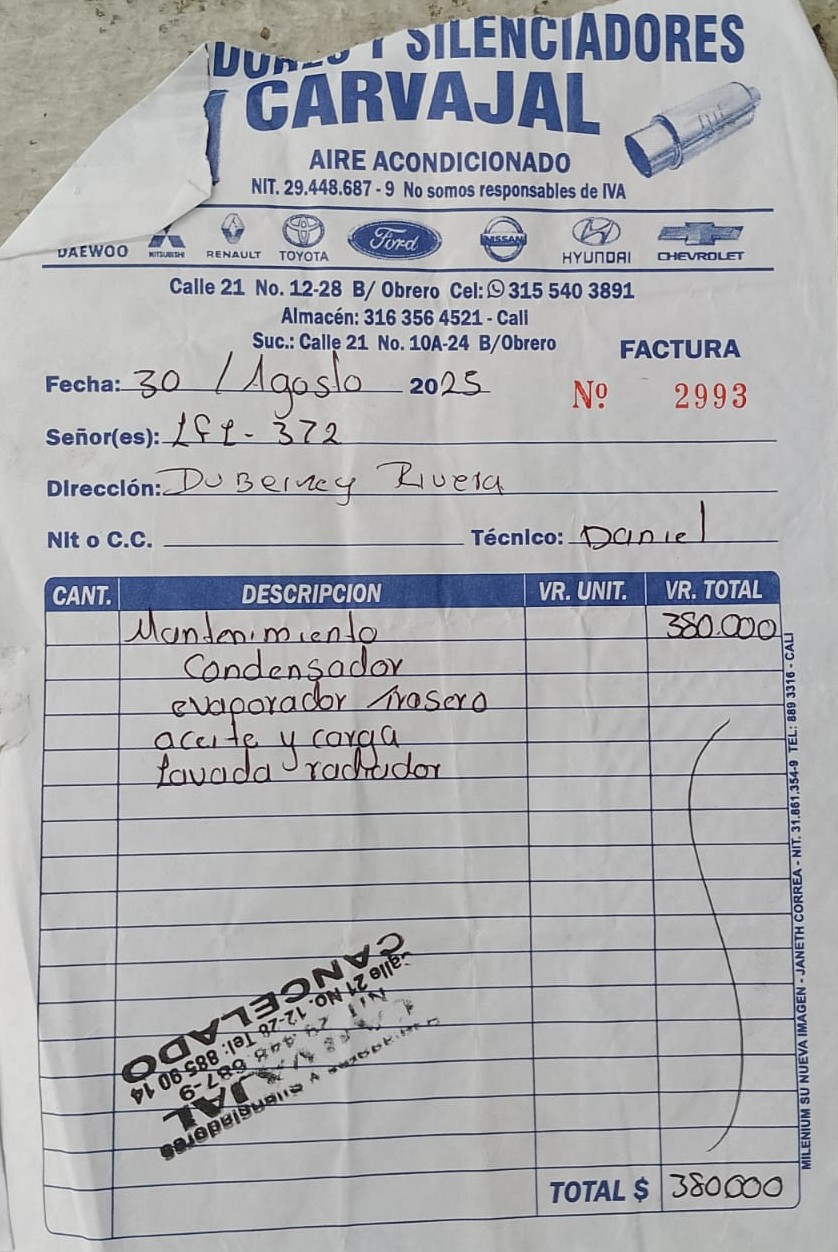 Y SILENCIADORES
CARVAJAL
AIRE ACONDICIONADO
NIT. 29.448.687 - 9 No somos responsables de IVA
DAEWOO MITSUBISHI RENAULT TOYOTA Ford NISSAN HYUNDAI CHEVROLET
Calle 21 No. 12-28 B/ Obrero Cel: 315 540 3891
Almacén: 316 356 4521 - Cali
Suc.: Calle 21 No. 10A-24 B/Obrero
FACTURA
Fecha: 30 / Agosto 2025 Nº 2993
Señor(es): - 372
Dirección: DuBerney Rivera
Nit o C.C. Técnico: Daniel
CANT. DESCRIPCION VR. UNIT. VR. TOTAL
Mantenimiento 380.000
Condensador
evaporador trasero
aceite y carga
lavada radiador
CANCELADO
Calle 21 No. 12-28 Tel: 885 90 14
NIT 29.448.687-9
y silenciadores
TOTAL $ 380000
MILENIUM SU NUEVA IMAGEN - JANETH CORREA - NIT. 31.861.354-9 TEL: 889 3316 - CALI